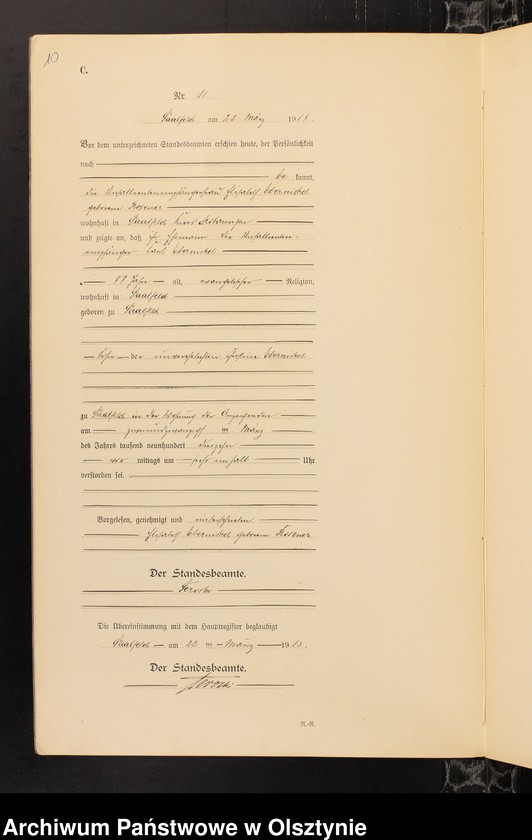 10
C.
Nr. 11
Saalfeld am 22 März 1913.
Vor dem unterzeichneten Standesbeamten erschien heute, der Persönlichkeit
nach
be kannt,
die Unfallrentenempfängerfrau Elisabeth Ebernickel
geborene
wohnhaft in Saalfeld Kreis Mohrungen
und zeigte an, daß ihr Ehemann der Unfallrenten-
empfänger Carl Ebernickel
Jahre alt, evangelischer Religion,
wohnhaft in Saalfeld
geboren zu Saalfeld
Sohn der unverehelichten Ebernickel
zu Saalfeld in der Wohnung der
am zweiundzwanzigsten März
des Jahres tausend neunhundert dreizehn
vor mittags um Uhr
verstorben sei.
Vorgelesen, genehmigt und unterschrieben
Elisabeth Ebernickel geborene
Der Standesbeamte.
Die Übereinstimmung mit dem Hauptregister beglaubigt
Saalfeld am 22 März 1913.
Der Standesbeamte.
R.-R.
Archiwum Państwowe w Olsztynie